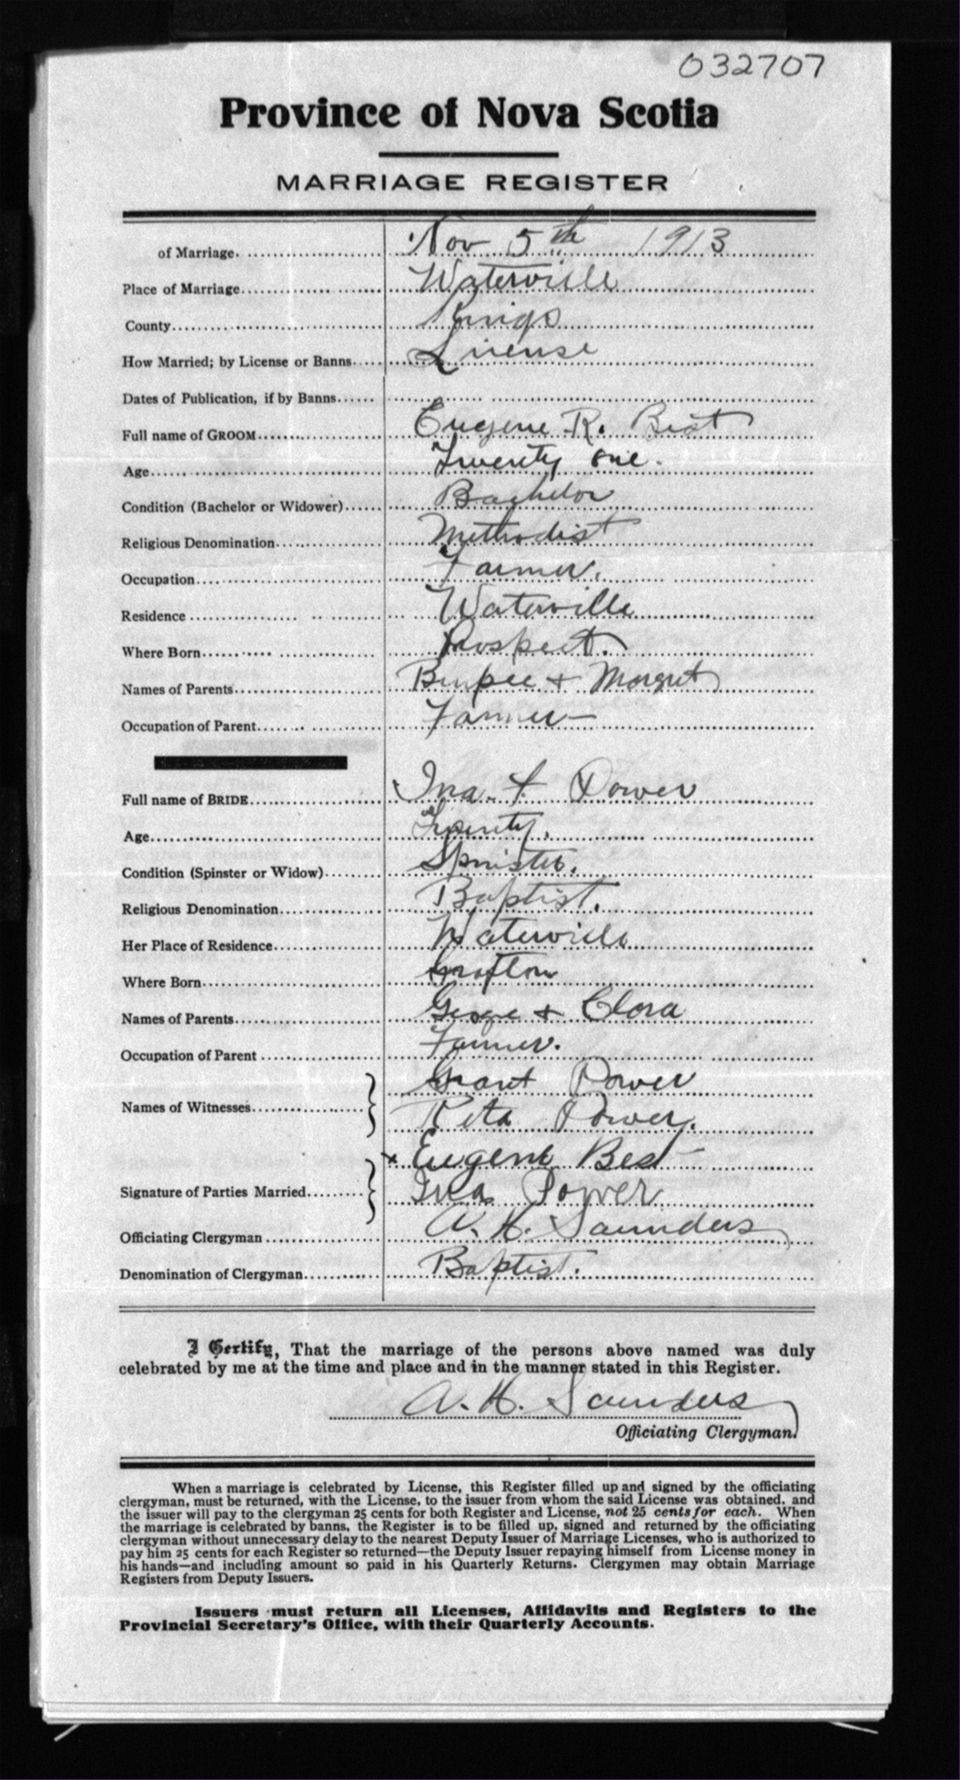 032707
Province of Nova Scotia
MARRIAGE REGISTER
of Marriage. Nov 5th 1913
Place of Marriage Waterville
County Kings
How Married; by License or Banns License
Dates of Publication, if by Banns
Full name of GROOM Eugene R. Best
Age Twenty one.
Condition (Bachelor or Widower) Bachelor
Religious Denomination Methodist
Occupation Farmer.
Residence Waterville
Where Born Prospect.
Names of Parents Burpee + Margret
Occupation of Parent Farmer
Full name of BRIDE Ina. F Power
Age Twenty.
Condition (Spinster or Widow) Spinster.
Religious Denomination Baptist.
Her Place of Residence Waterville
Where Born Grafton
Names of Parents George + Clora
Occupation of Parent Farmer.
Names of Witnesses Grant Power
Reta Power.
x Eugene Best
Signature of Parties Married Ina Power
Officiating Clergyman A. H. Saunders
Denomination of Clergyman Baptist.
I Certify, That the marriage of the persons above named was duly
celebrated by me at the time and place and in the manner stated in this Register.
A. H. Saunders
Officiating Clergyman.
When a marriage is celebrated by License, this Register filled up and signed by the officiating
clergyman, must be returned, with the License, to the issuer from whom the said License was obtained, and
the issuer will pay to the clergyman 25 cents for both Register and License, not 25 cents for each. When
the marriage is celebrated by banns, the Register is to be filled up, signed and returned by the officiating
clergyman without unnecessary delay to the nearest Deputy Issuer of Marriage Licenses, who is authorized to
pay him 25 cents for each Register so returned—the Deputy Issuer repaying himself from License money in
his hands—and including amount so paid in his Quarterly Returns. Clergymen may obtain Marriage
Registers from Deputy Issuers.
Issuers must return all Licenses, Affidavits and Registers to the
Provincial Secretary's Office, with their Quarterly Accounts.